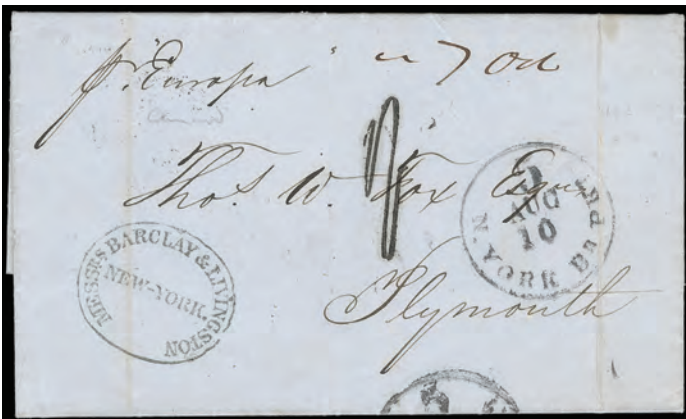 pr "Europa"
Thos. W. Fox Esqr
Plymouth
MESSRS BARCLAY & LIVINGSTON
NEW-YORK.
5
AUG
10
N. YORK Br Pkt